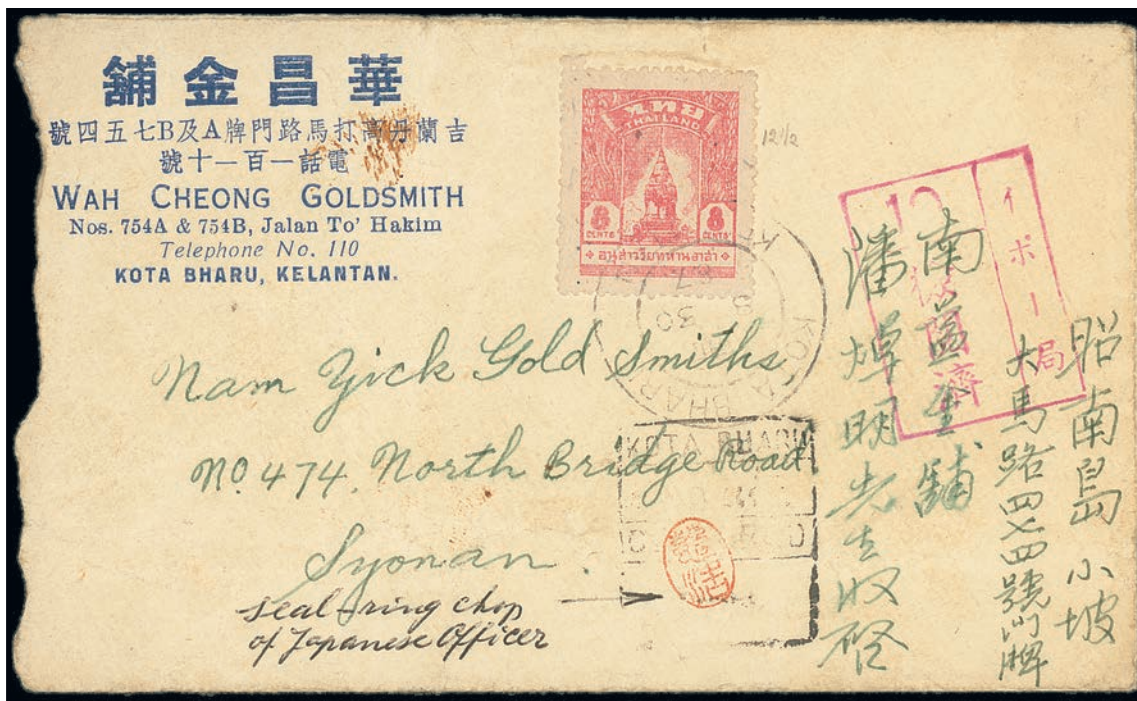 舖金昌華
號四五七B及A牌門路馬打高丹蘭吉
號十一百一話電
WAH CHEONG GOLDSMITH
Nos. 754A & 754B, Jalan To' Hakim
Telephone No. 110
KOTA BHARU, KELANTAN.
ไทย
THAILAND
8 8
CENTS CENTS
12½
KOTA BHARU
Nam Yick Gold Smiths,
No 474. North Bridge Road
Syonan.
KOTA BHARU
seal-ring chop
of Japanese Officer
イポー局
檢閱濟
昭南島 小坡
大馬路四七四號門牌
南益金舖
潘焯明先生收啓